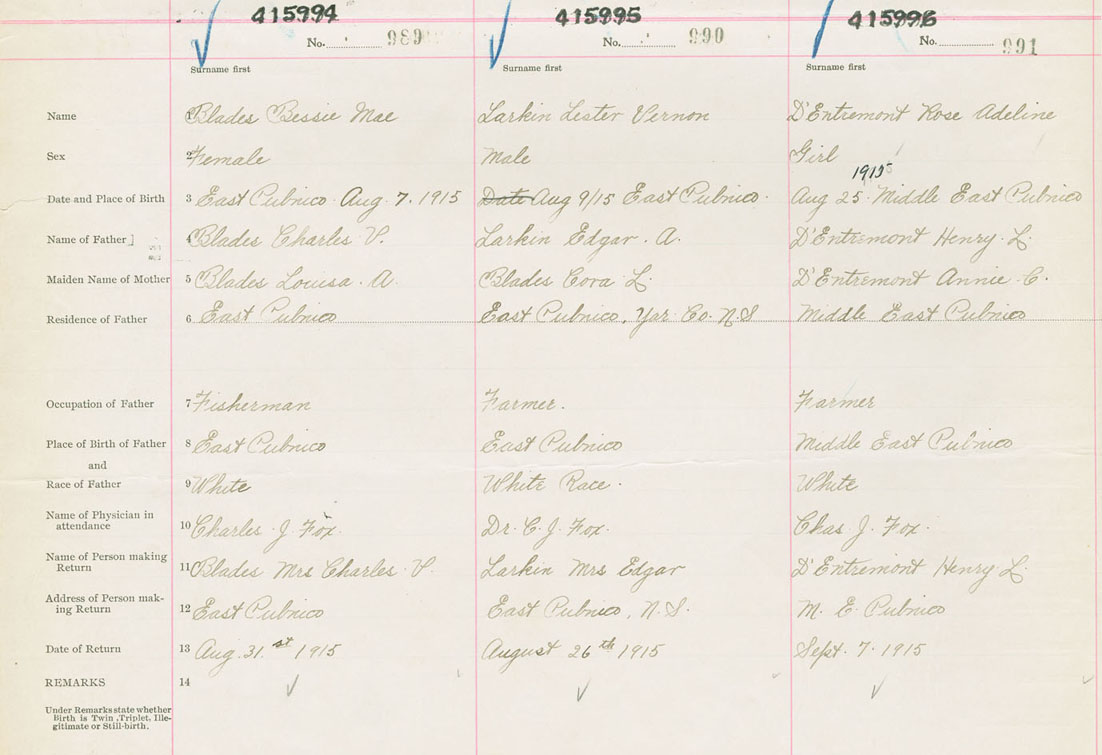 415994 415995 415996
No. 989 No. 990 No. 991
Surname first Surname first Surname first
Name 1 Blades Bessie Mae Larkin Lester Vernon D'Entremont Rose Adeline
Sex 2 Female Male Girl
1915
Date and Place of Birth 3 East Pubnico Aug. 7. 1915 Date Aug 9/15 East Pubnico. Aug 25. Middle East Pubnico
Name of Father 4 Blades Charles V. Larkin Edgar. A. D'Entremont Henry L.
Maiden Name of Mother 5 Blades Louisa. A. Blades Cora L. D'Entremont Annie. C.
Residence of Father 6 East Pubnico East Pubnico, Yar. Co. N.S Middle East Pubnico
Occupation of Father 7 Fisherman Farmer. Farmer
Place of Birth of Father 8 East Pubnico East Pubnico Middle East Pubnico
and
Race of Father 9 White White Race. White
Name of Physician in
attendance 10 Charles. J. Fox. Dr. C. J. Fox. Chas. J. Fox.
Name of Person making
Return 11 Blades Mrs Charles V. Larkin Mrs Edgar D'Entremont Henry L.
Address of Person mak-
ing Return 12 East Pubnico East Pubnico, N.S. M. E. Pubnico
Date of Return 13 Aug. 31.st 1915 August 26th 1915 Sept. 7. 1915
REMARKS 14
Under Remarks state whether
Birth is Twin, Triplet, Ille-
gitimate or Still-birth.